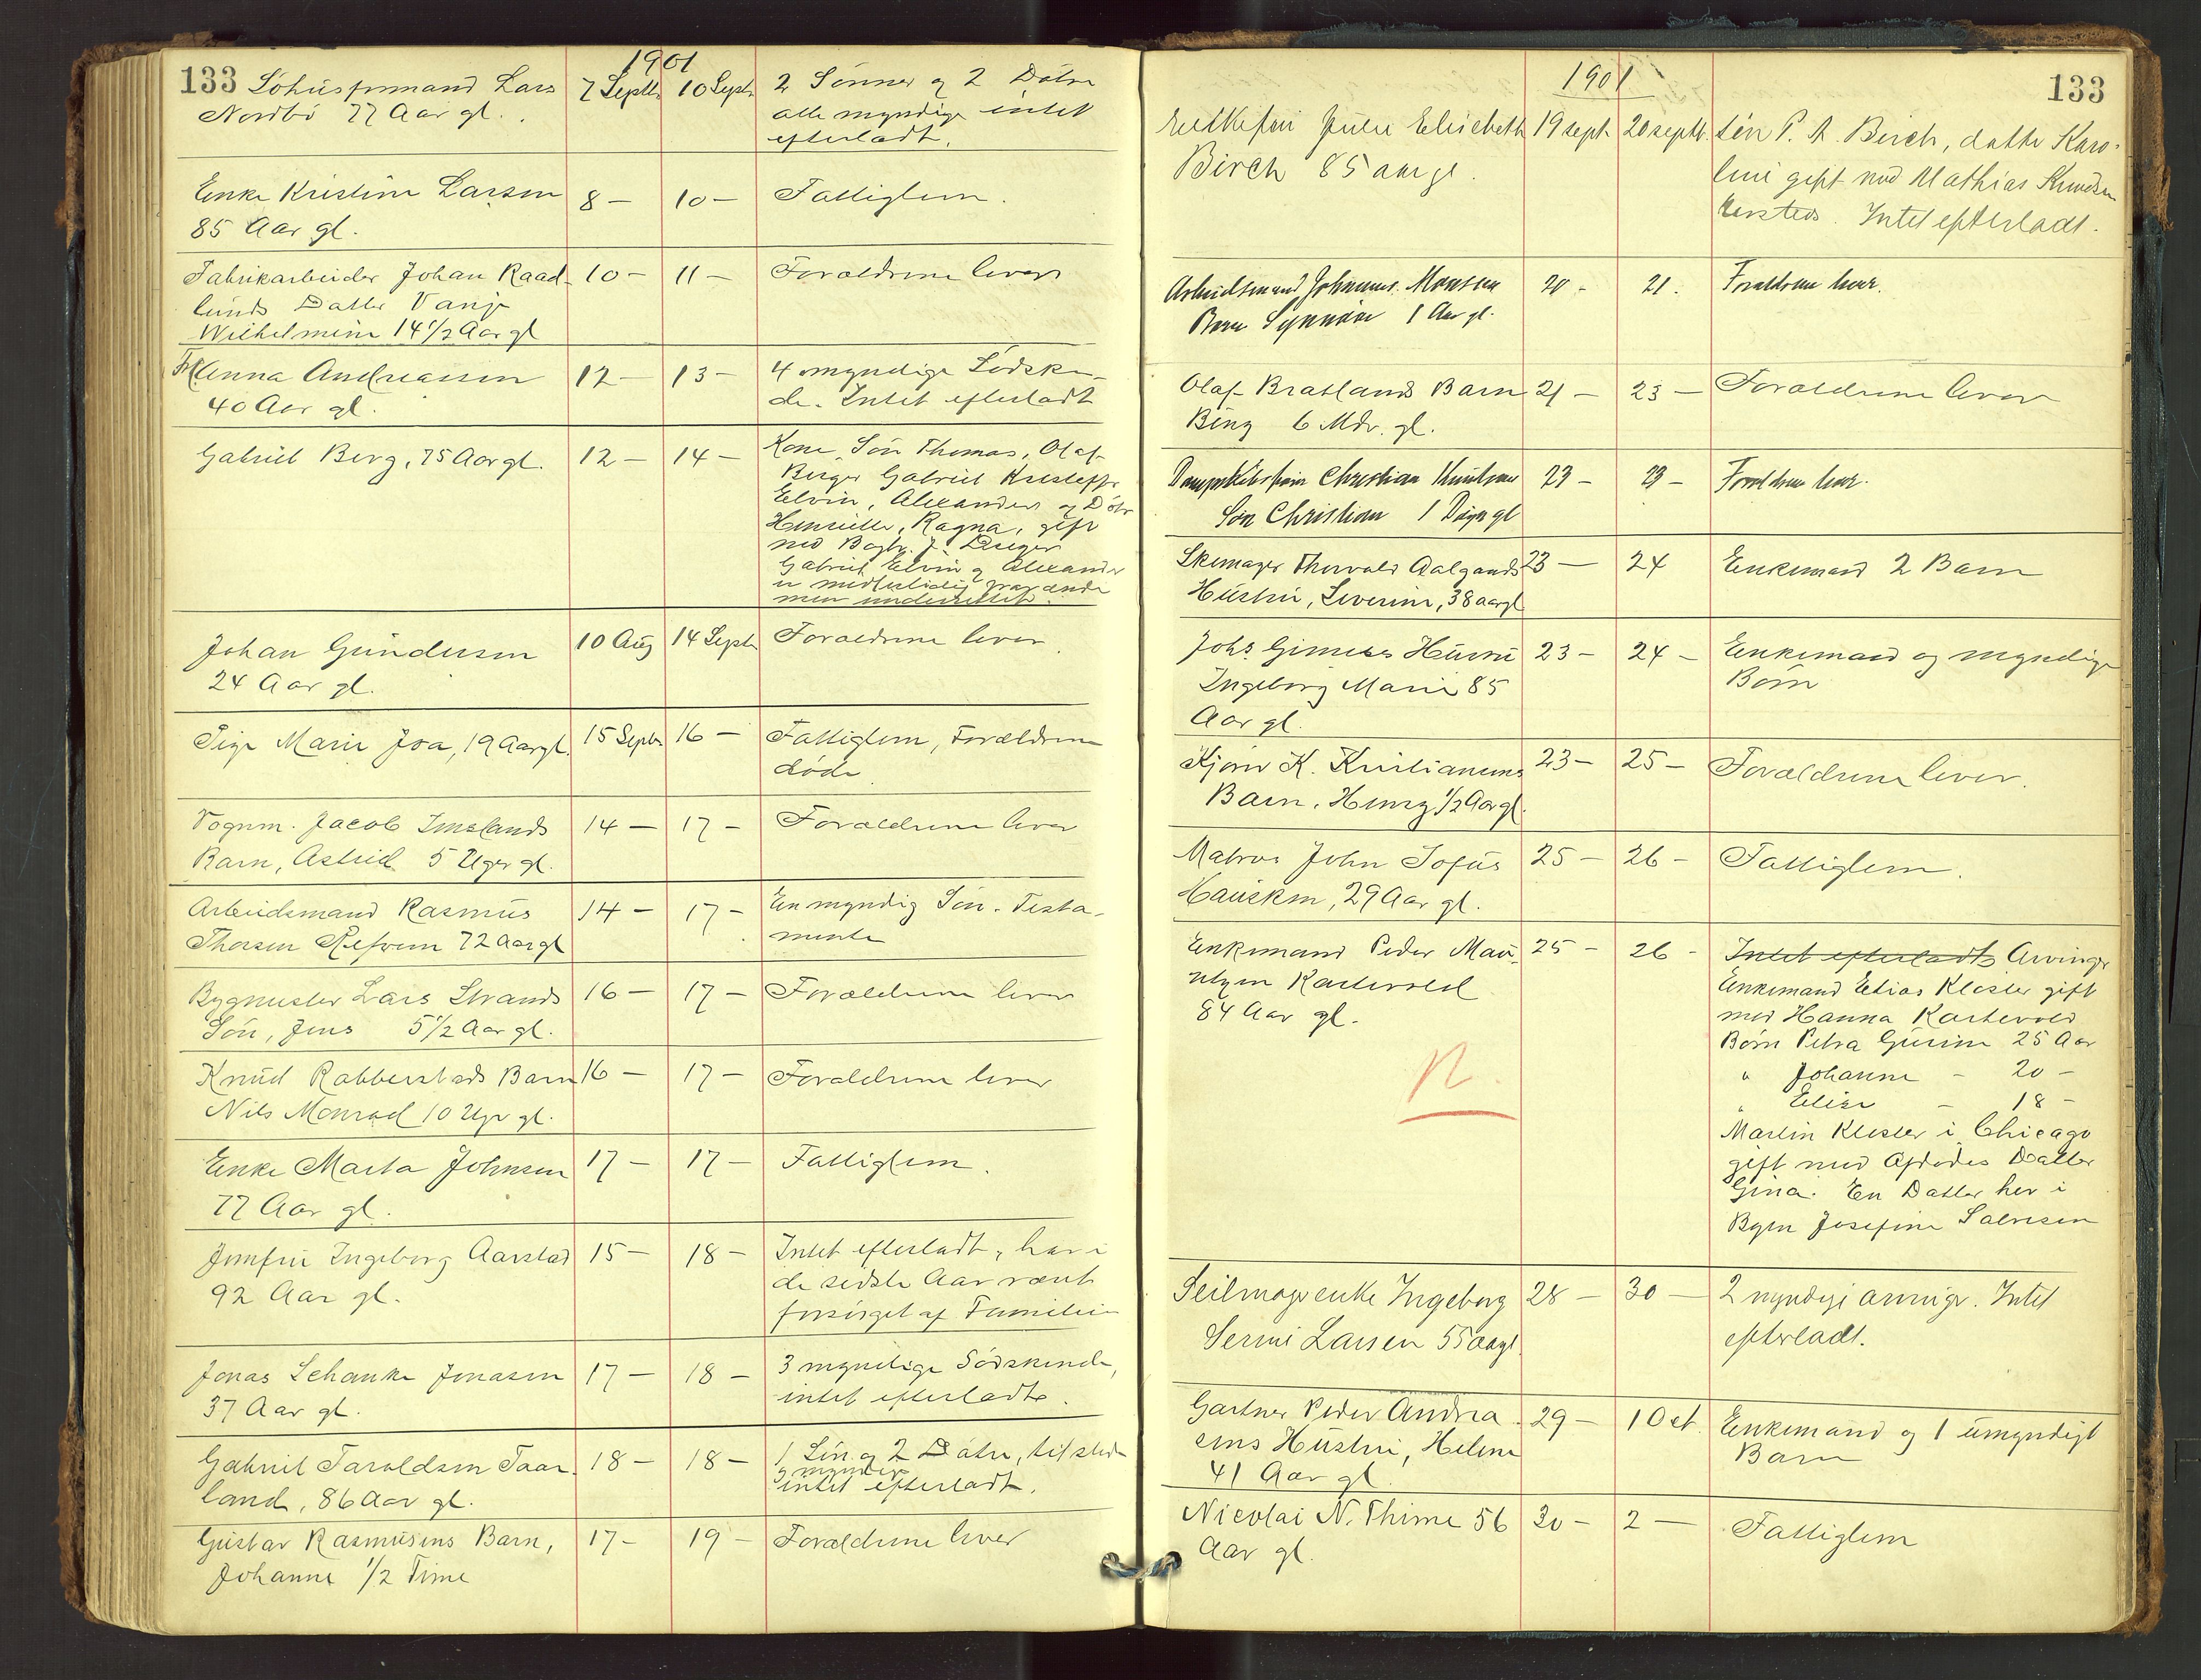 1901
133 Søhuusformand Lars 7 Septb 10 Septb 2 Sønner og 2 Døtre
Nordbö 77 Aar gl. alle myndige intet
efterladt.
Enke Kristine Larsen 8 — 10 — Fattiglem.
85 Aar gl.
Fabrikarbeider Johan Raad- 10 — 11 — Forældrene lever
lunds Datter Vanja
Wilhelmine 14 1/2 Aar gl
Frk Anna Andreassen 12 — 13 — 4 myndige Södsken-
40 Aar gl. de. Intet efterladt
Gabriel Berg, 75 Aar gl. 12 — 14 — Kone, Sön Thomas, Olaf
Birger Gabriel Kristoffer
Elvin, Alexander og Døtr
Henriette, Ragna, gift
med Bogtr. J. Dreyer
Gabriel Elvin og Alexander
er midlertidig fraværende
men underrettet.
Johan Gundersen 10 Aug 14 Septb Forældrene lever
24 Aar gl.
Pige Marie Joa, 19 Aar gl. 15 Septb 16 — Fattiglem, Forældrene
døde
Vognm. Jacob Imslands 14 — 17 — Forældrene lever
Barn, Astrid 5 Uger gl.
Arbeidsmand Rasmus 14 — 17 — En myndig Sön. Testa-
Thorsen Refvem 72 Aar gl mente
Bygmester Lars Strands 16 — 17 — Forældrene lever
Sön, Jens 5 1/2 Aar gl.
Knud Rabberstads Barn 16 — 17 — Forældrene lever
Nils Monrad 10 Uger gl.
Enke Marta Johnsen 17 — 17 — Fattiglem.
77 Aar gl.
Jomfru Ingeborg Aarstad 15 — 18 — Intet efterladt, har i
92 Aar gl. de sidste Aar vært
forsørget af Familien
Jonas Schanke Jonasen 17 — 18 — 3 myndige Södskende,
37 Aar gl. intet efterladt.
Gabriel Taroldsen Taar- 18 — 18 — 1 Sön og 2 Døtre, tilstede
land, 86 Aar gl. og myndige intet efterladt.
Gustav Rasmusens Barn, 17 — 19 — Forældrene lever
Johanne 1/2 Time
1901 133
Enkefru Julie Elisabeth 19 sept. 20 septb. Sön P. A. Birch, datter Karo-
Birch 85 aar gl. line gift med Mathias Knudsen
Intet efterladt.
Arbeidsmand Johannes Monsen 20 - 21. Forældrene lever.
Barn Synnöve 1 Aar gl.
Olaf Bratlands Barn 21 — 23 — Forældrene lever
Beny 6 Mdr. gl.
Dampskibsfører Christian Knutsens 23 — 23 — Forældrene lever.
Søn Christian 1 Døgn gl
Skomager Thorvald Aalgaards 23 — 24 Enkemand 2 Barn
Hustru, Severine, 38 aar gl
Johs. Gimres Hustru 23 — 24 — Enkemand og myndige
Ingeborg Marie 85 Börn
Aar gl.
Kjører K. Kristiansens 23 — 25 — Forældrene lever.
Barn, Henry 1/2 Aar gl.
Matros John Sofus 25 — 26 — Fattiglem.
Hausken, 29 Aar gl.
Enkemand Peder Mau- 25 — 26 - Intet efterladt Arvinger
ritzen Kartevold Enkemand Elias Kloster gift
84 Aar gl. med Hanna Kartevold
Börn Petra Gurine 25 Aar
" Johanne - 20 —
" Elise - 18 —
Martin Kloster i Chicago
gift med Afdödes Datter
Gina. En Datter her i
Byen Josefine Salvesen
N.
Seilmagerenke Ingeborg 28 — 30 — 2 myndige arvinger. Intet
Serine Larsen 55 aar gl efterladt.
Gartner Peder Andrea- 29 — 1 Oct Enkemand og 1 umyndigt
sens Hustru, Helene Barn
41 Aar gl.
Nicolai N. Thime 56 30 — 2 — Fattiglem
Aar gl.